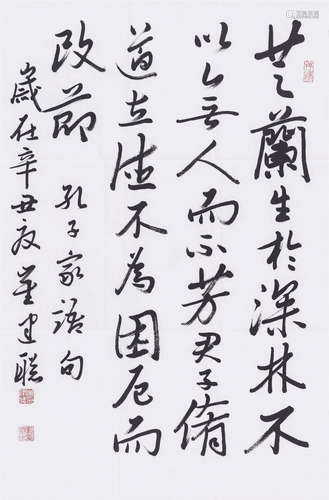 芝蘭生於深林不
以無人而不芳君子脩
道立德不為困厄而
改節 孔子家語句
歲在辛丑夏董建